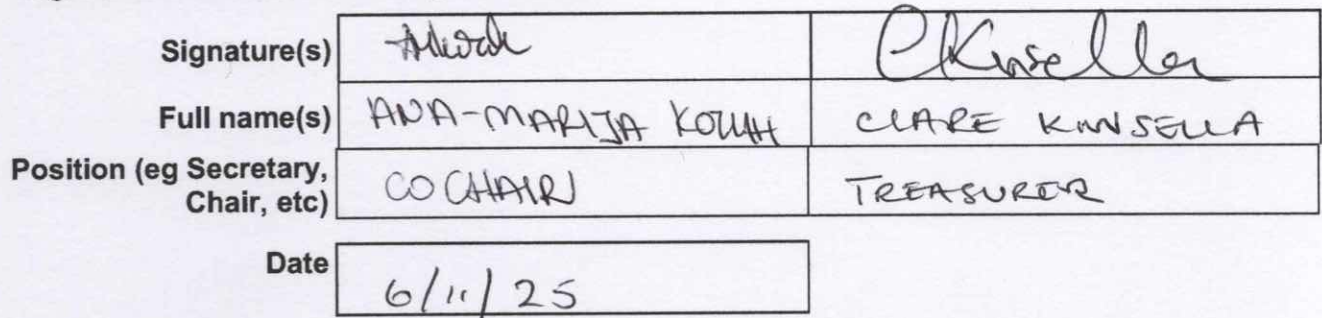 Signature(s) CKinsella
Full name(s) ANA-MARIJA CLARE KINSELLA
Position (eg Secretary,
Chair, etc) CO CHAIR TREASURER
Date 6/11/25